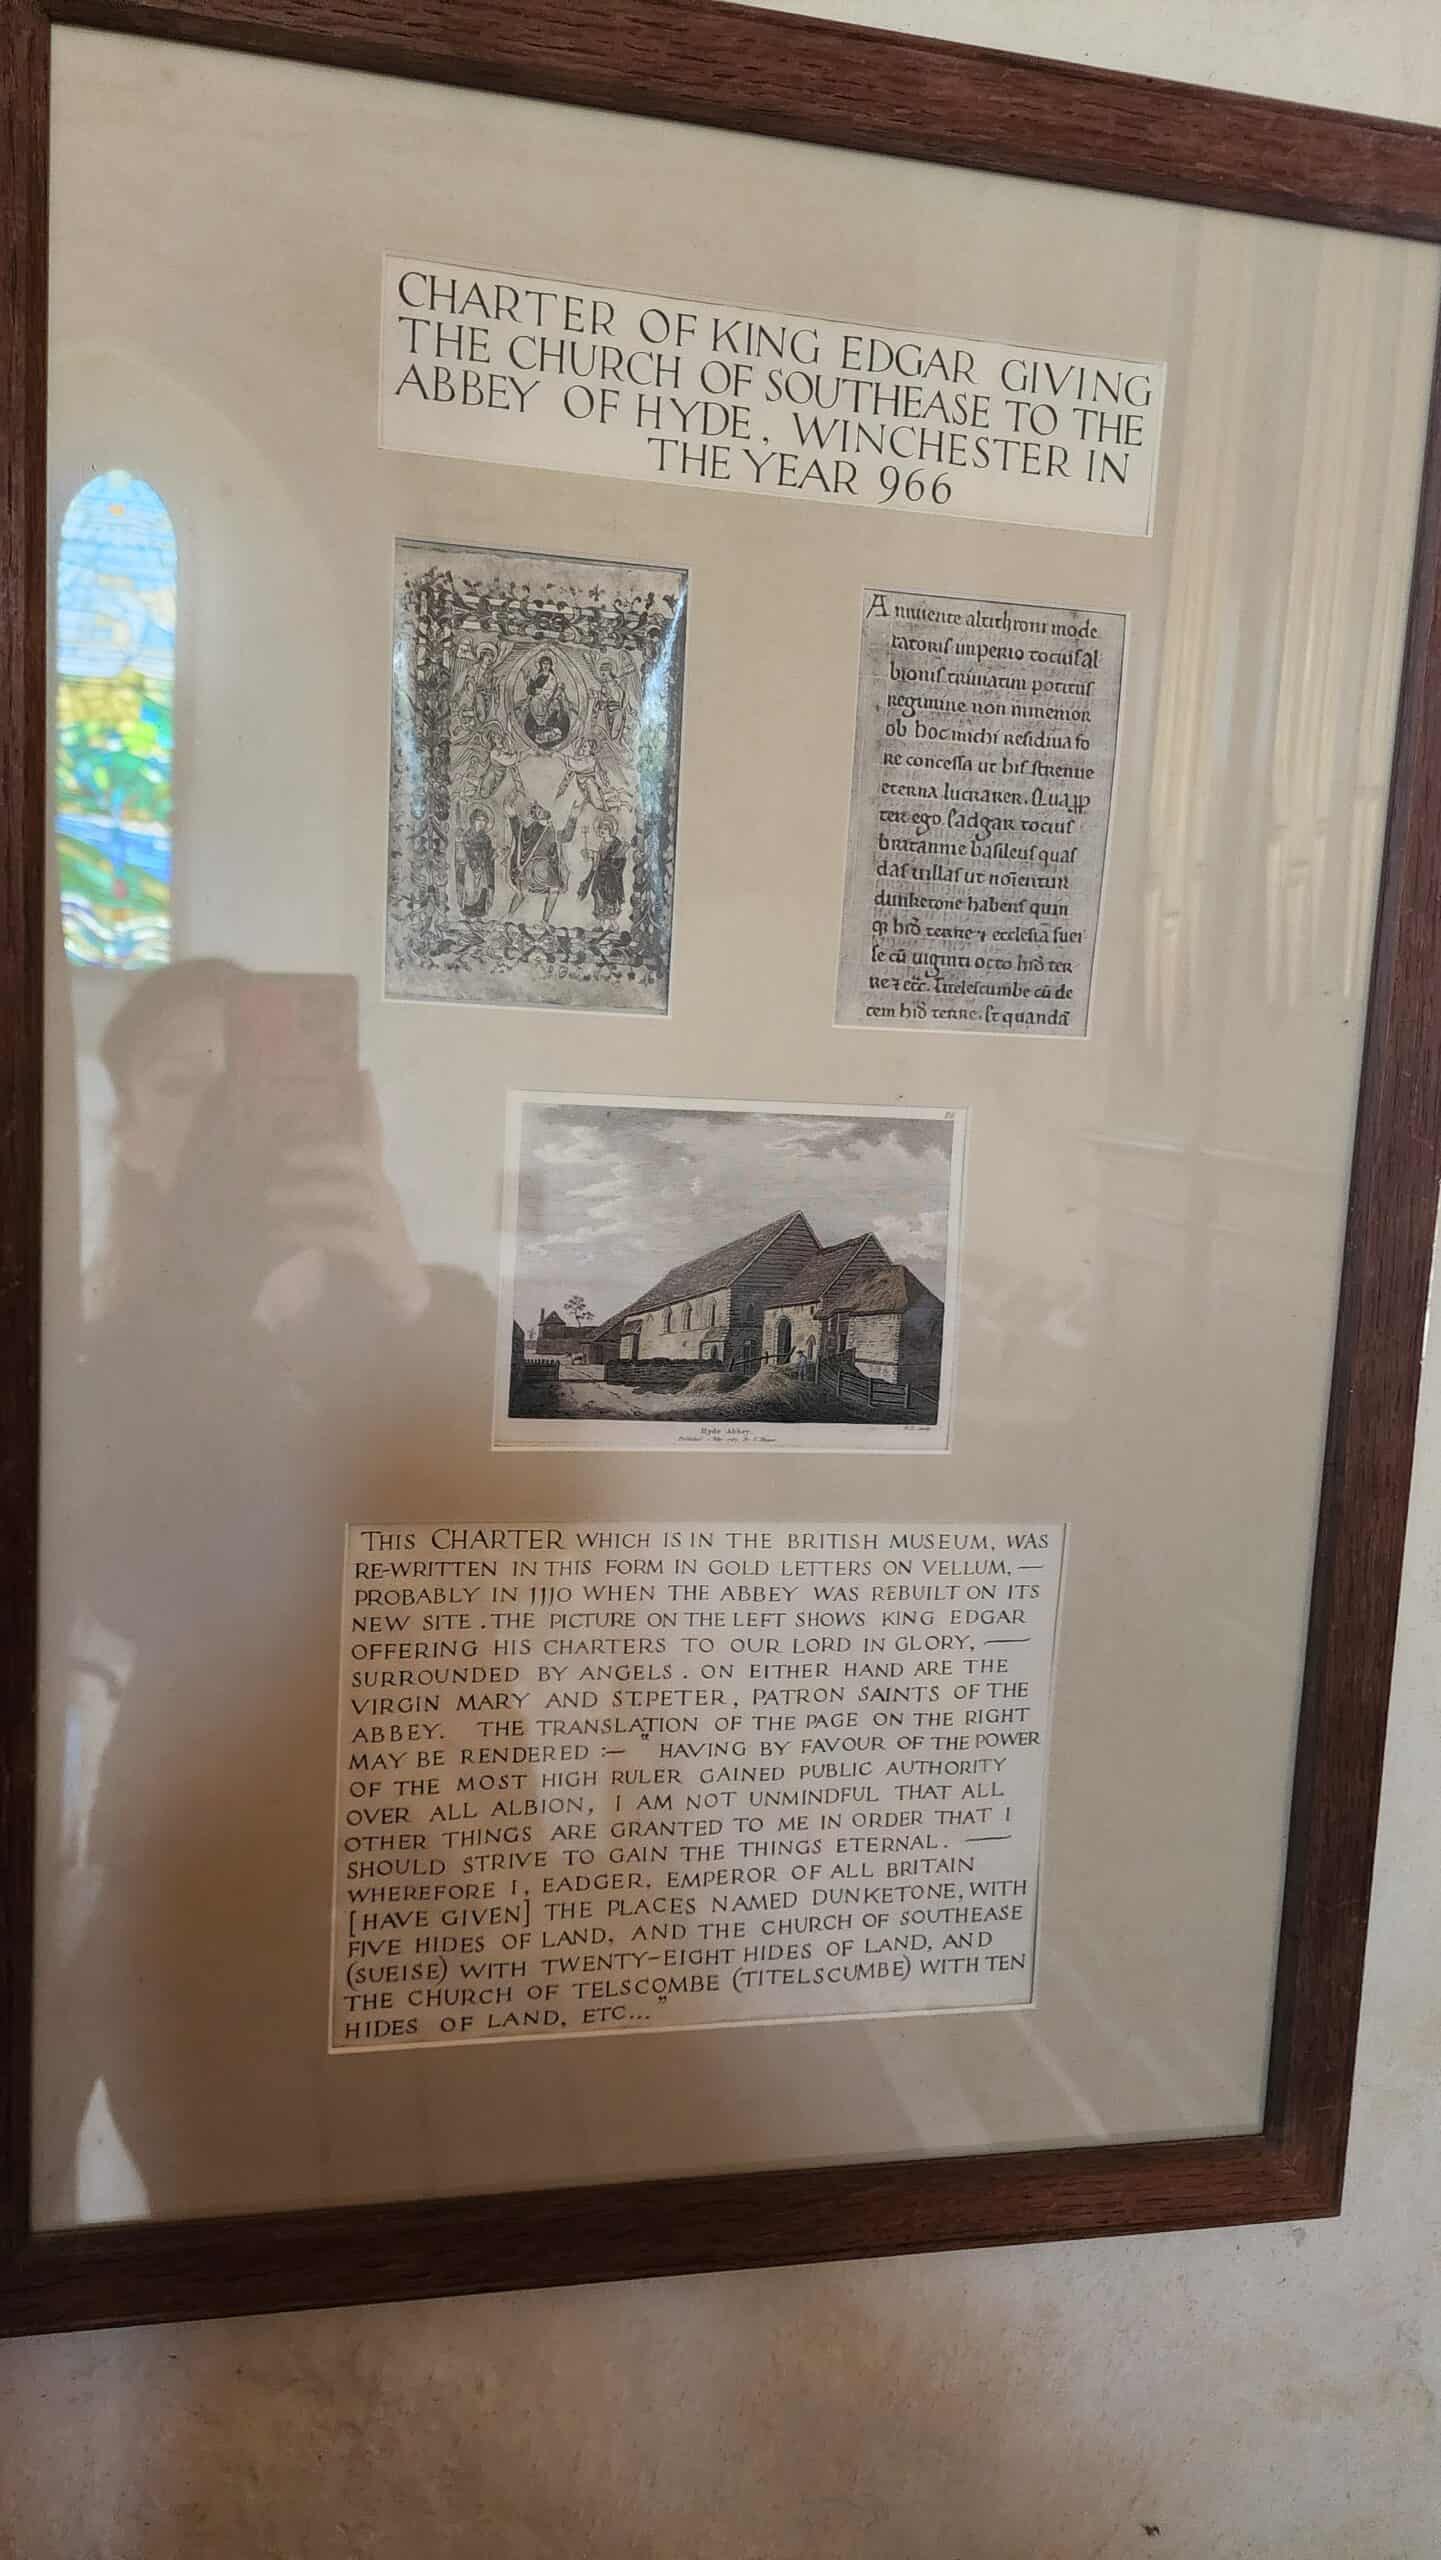 CHARTER OF KING EDGAR GIVING
THE CHURCH OF SOUTHEASE TO THE
ABBEY OF HYDE, WINCHESTER IN
THE YEAR 966
A nnuente altithroni mode
ratoris imperio totius al
bionis triuiatim potitus
regimine non inmemor
ob hoc michi residiua fo
re concessa ut his strenue
eterna lucrarer. Quapp
ter ego Eadgar totius
britannie basileus quas
das uillas ut noientur
dunketone habens quin
hid terre ⁊ ecclesia suei
se cu uiginti octo hid ter
re ⁊ ecc. Titelescumbe cu de
cem hid terre. Et quanda
Hyde Abbey.
THIS CHARTER WHICH IS IN THE BRITISH MUSEUM, WAS
RE-WRITTEN IN THIS FORM IN GOLD LETTERS ON VELLUM, —
PROBABLY IN 1110 WHEN THE ABBEY WAS REBUILT ON ITS
NEW SITE. THE PICTURE ON THE LEFT SHOWS KING EDGAR
OFFERING HIS CHARTERS TO OUR LORD IN GLORY, —
SURROUNDED BY ANGELS. ON EITHER HAND ARE THE
VIRGIN MARY AND ST.PETER, PATRON SAINTS OF THE
ABBEY. THE TRANSLATION OF THE PAGE ON THE RIGHT
MAY BE RENDERED :— "HAVING BY FAVOUR OF THE POWER
OF THE MOST HIGH RULER GAINED PUBLIC AUTHORITY
OVER ALL ALBION, I AM NOT UNMINDFUL THAT ALL
OTHER THINGS ARE GRANTED TO ME IN ORDER THAT I
SHOULD STRIVE TO GAIN THE THINGS ETERNAL. —
WHEREFORE I, EADGER, EMPEROR OF ALL BRITAIN
[HAVE GIVEN] THE PLACES NAMED DUNKETONE, WITH
FIVE HIDES OF LAND, AND THE CHURCH OF SOUTHEASE
(SUEISE) WITH TWENTY-EIGHT HIDES OF LAND, AND
THE CHURCH OF TELSCOMBE (TITELSCUMBE) WITH TEN
HIDES OF LAND, ETC..."